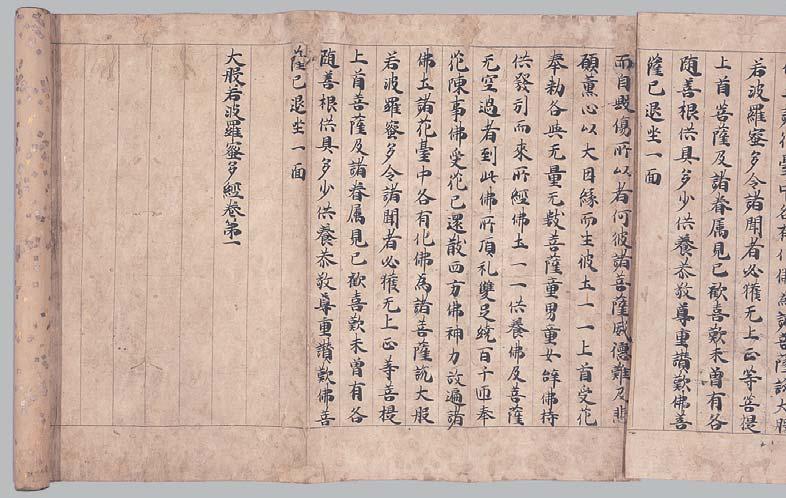 若波羅蜜多令諸聞者必獲无上正等菩提
上首菩薩及諸眷属見已歡喜歎未曾有各
随善根供具多少供養恭敬尊重讚歎佛菩
薩已退坐一面
而自毀傷所以者何彼諸菩薩威德難及悲
願薫心以大因緣而生彼土一一上首受花
奉勅各與无量无數菩薩童男童女辭佛持
供發引而來所經佛土一一供養佛及菩薩
无空過者到此佛所頂礼雙足繞百千匝奉
花陳事佛受花已還散西方佛神力故遍諸
佛土諸花臺中各有化佛為諸菩薩說大般
若波羅蜜多令諸聞者必獲无上正等菩提
上首菩薩及諸眷属見已歡喜歎未曾有各
随善根供具多少供養恭敬尊重讚歎佛菩
薩已退坐一面
大般若波羅蜜多經卷第一